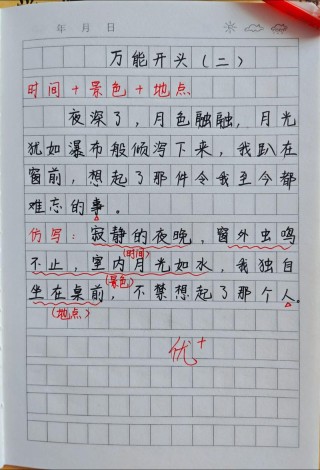 年 月 日
万能开头（二）
时间+景色+地点
夜深了，月色融融，月光
犹如瀑布般倾泻下来，我趴在
窗前，想起了那件令我至今都
难忘的事。
仿写：寂静的夜晚，窗外虫鸣
(时间)
不止，室内月光如水，我独自
(景色)
坐在桌前，不禁想起了那个人。
(地点)
优+